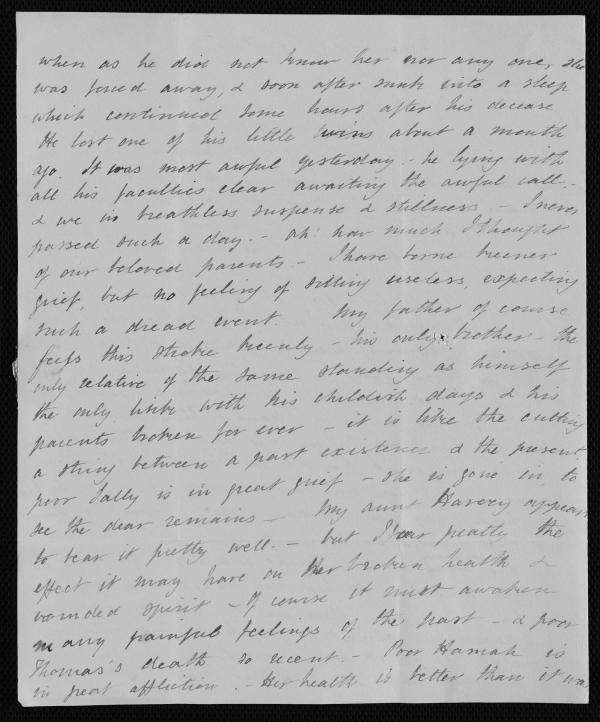 when as he did not know her nor any one, she
was forced away, & soon after sunk into a sleep
which continued some hours after his decease
He lost one of his little twins about a month
ago. It was most awful yesterday - he lying with
all his faculties clear awaiting the awful call. -
& we in breathless suspense & stillness - I never
passed such a day. - ah! how much I thought
of our beloved parents - I have borne keener
grief, but no feeling of sitting useless, expecting
such a dread event. My father of course
feels this stroke keenly - his only brother - the
only relative of the same standing as himself
the only link with his childish days & his
parents broken for ever - it is like the cutting
a string between a past existence & the present
poor Sally is in great grief - she is gone in to
see the dear remains - My aunt appears
to bear it pretty well. - but I fear greatly the
effect it may have on Her broken health &
wounded spirit - of course it must awaken
many painful feelings of the past - & poor
Thomas's death so recent. - Poor Hannah is
in great affliction. - Her health is better than it was